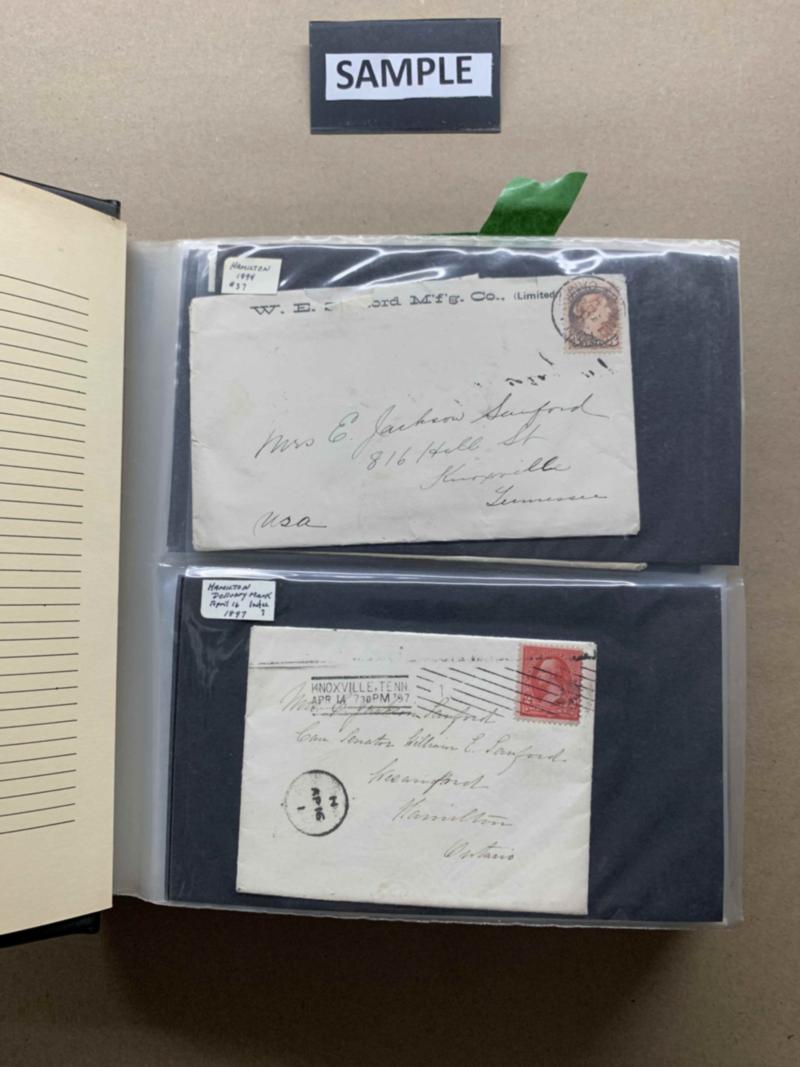 SAMPLE
HAMILTON
1894
#37
W. E. Mf'g. Co., (Limited)
Mrs E. Jackson Sanford
816 Hill St
Knoxville
Tennessee
USA
HAMILTON
Delivery Mark
April 16
1897 ?
KNOXVILLE, TENN.
APR 14 730PM '97
1
Mrs E. Jackson Sanford
Care Senator William E. Sanford
Wesanford
Hamilton
Ontario
M
AP 16
1